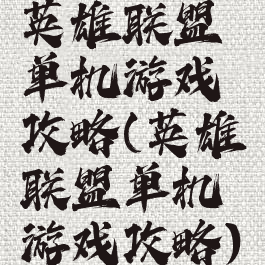 英雄联盟
单机游戏
攻略(英雄
联盟单机
游戏攻略)